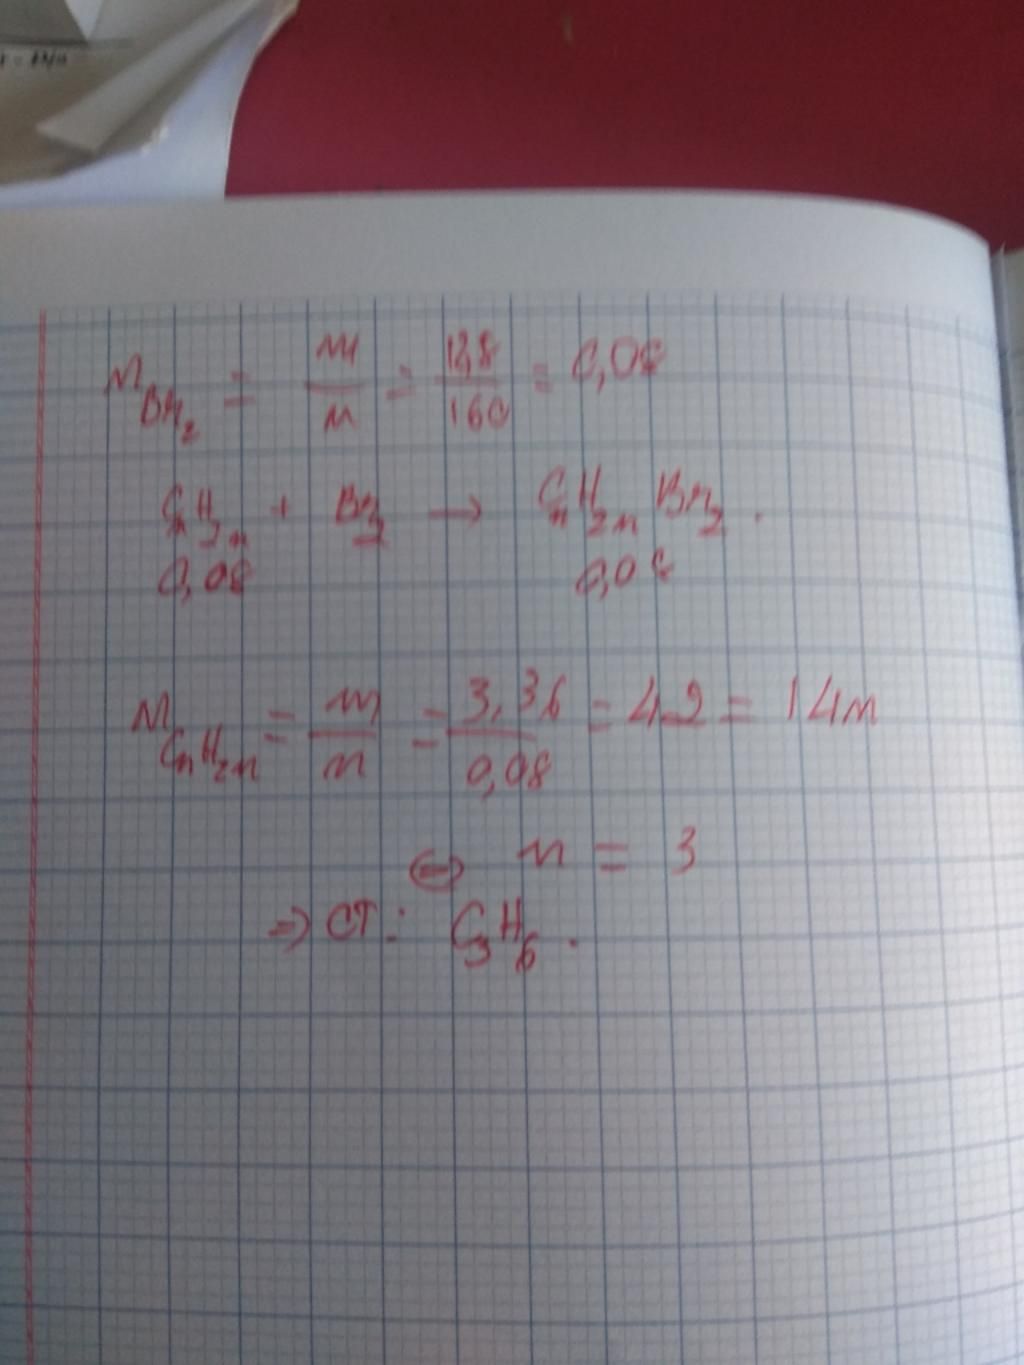 n_Br₂ = m/M = 12,8/160 = 0,08
CₙH₂ₙ + Br₂ → CₙH₂ₙBr₂.
0,08 0,08
M_CₙH₂ₙ = m/n = 3,36/0,08 = 42 = 14n
⇔ n = 3
⇒ CT: C₃H₆.